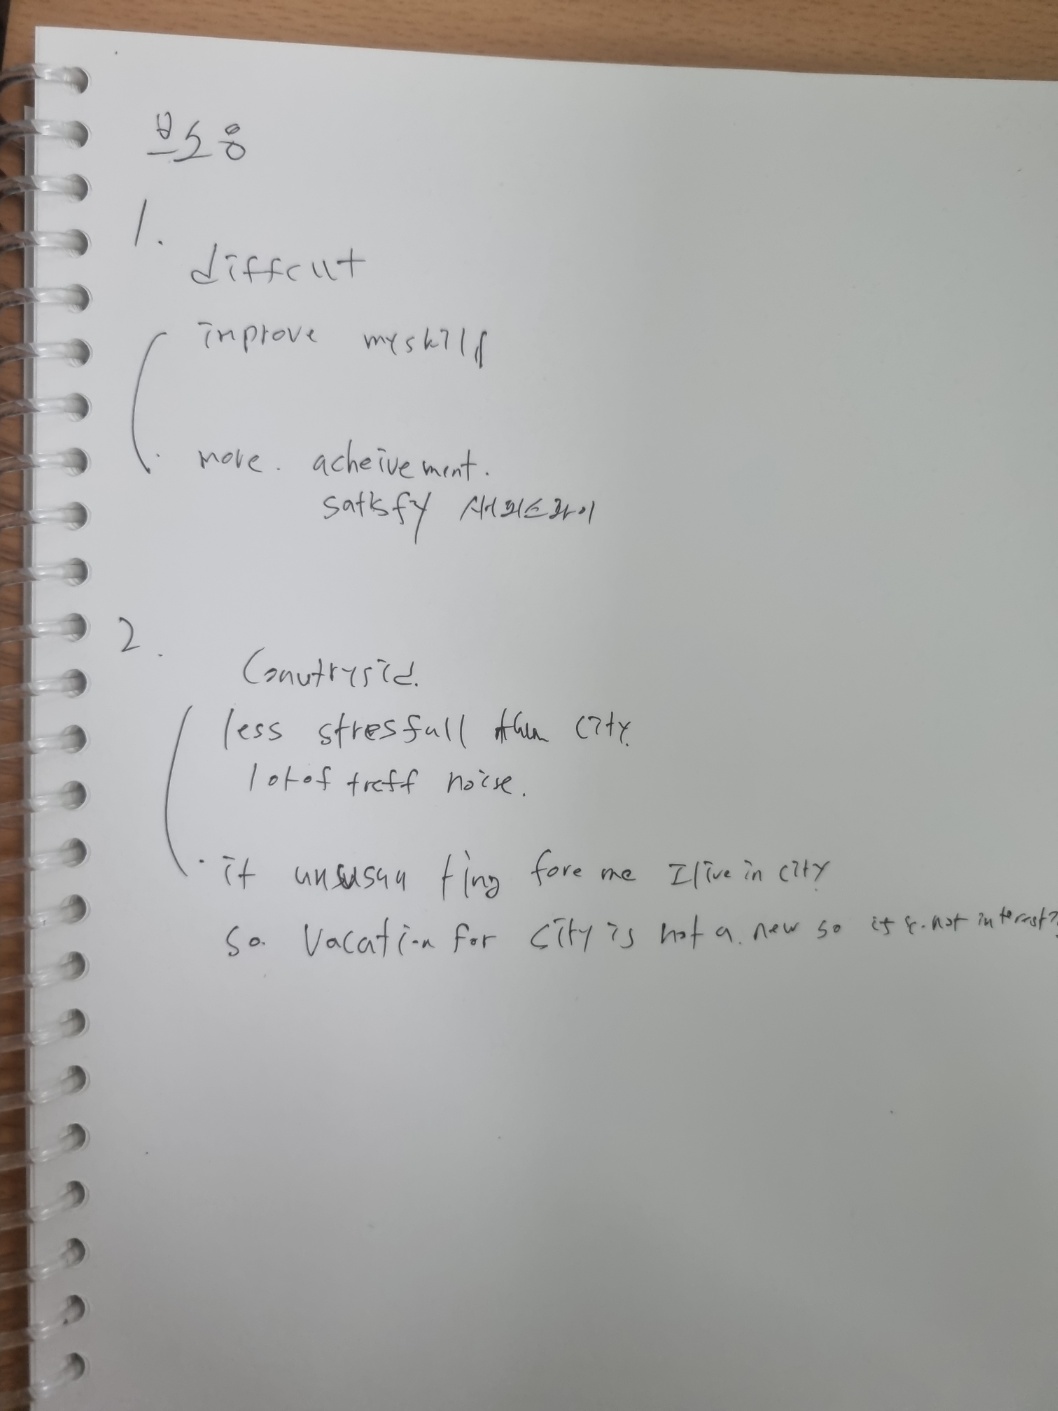 브소응
1.
diffcult
improve my skills
more. acheivement.
satisfy 새티스파이
2.
Conutrysid.
less stresfull than city.
lot of traff noise.
· it unusual ting fore me I live in city
so vacation for city is not a new so it s not interest